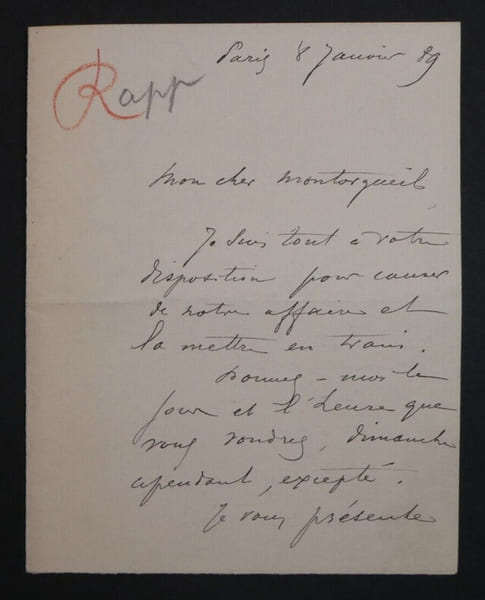 Paris 8 Janvier 89
Rapp
Mon cher Montorgueil
Je suis tout à votre
disposition pour causer
de notre affaire et
la mettre en train.
Donnez-moi le
jour et l'heure que
vous voudrez, dimanche
cependant, excepté.
Je vous présente